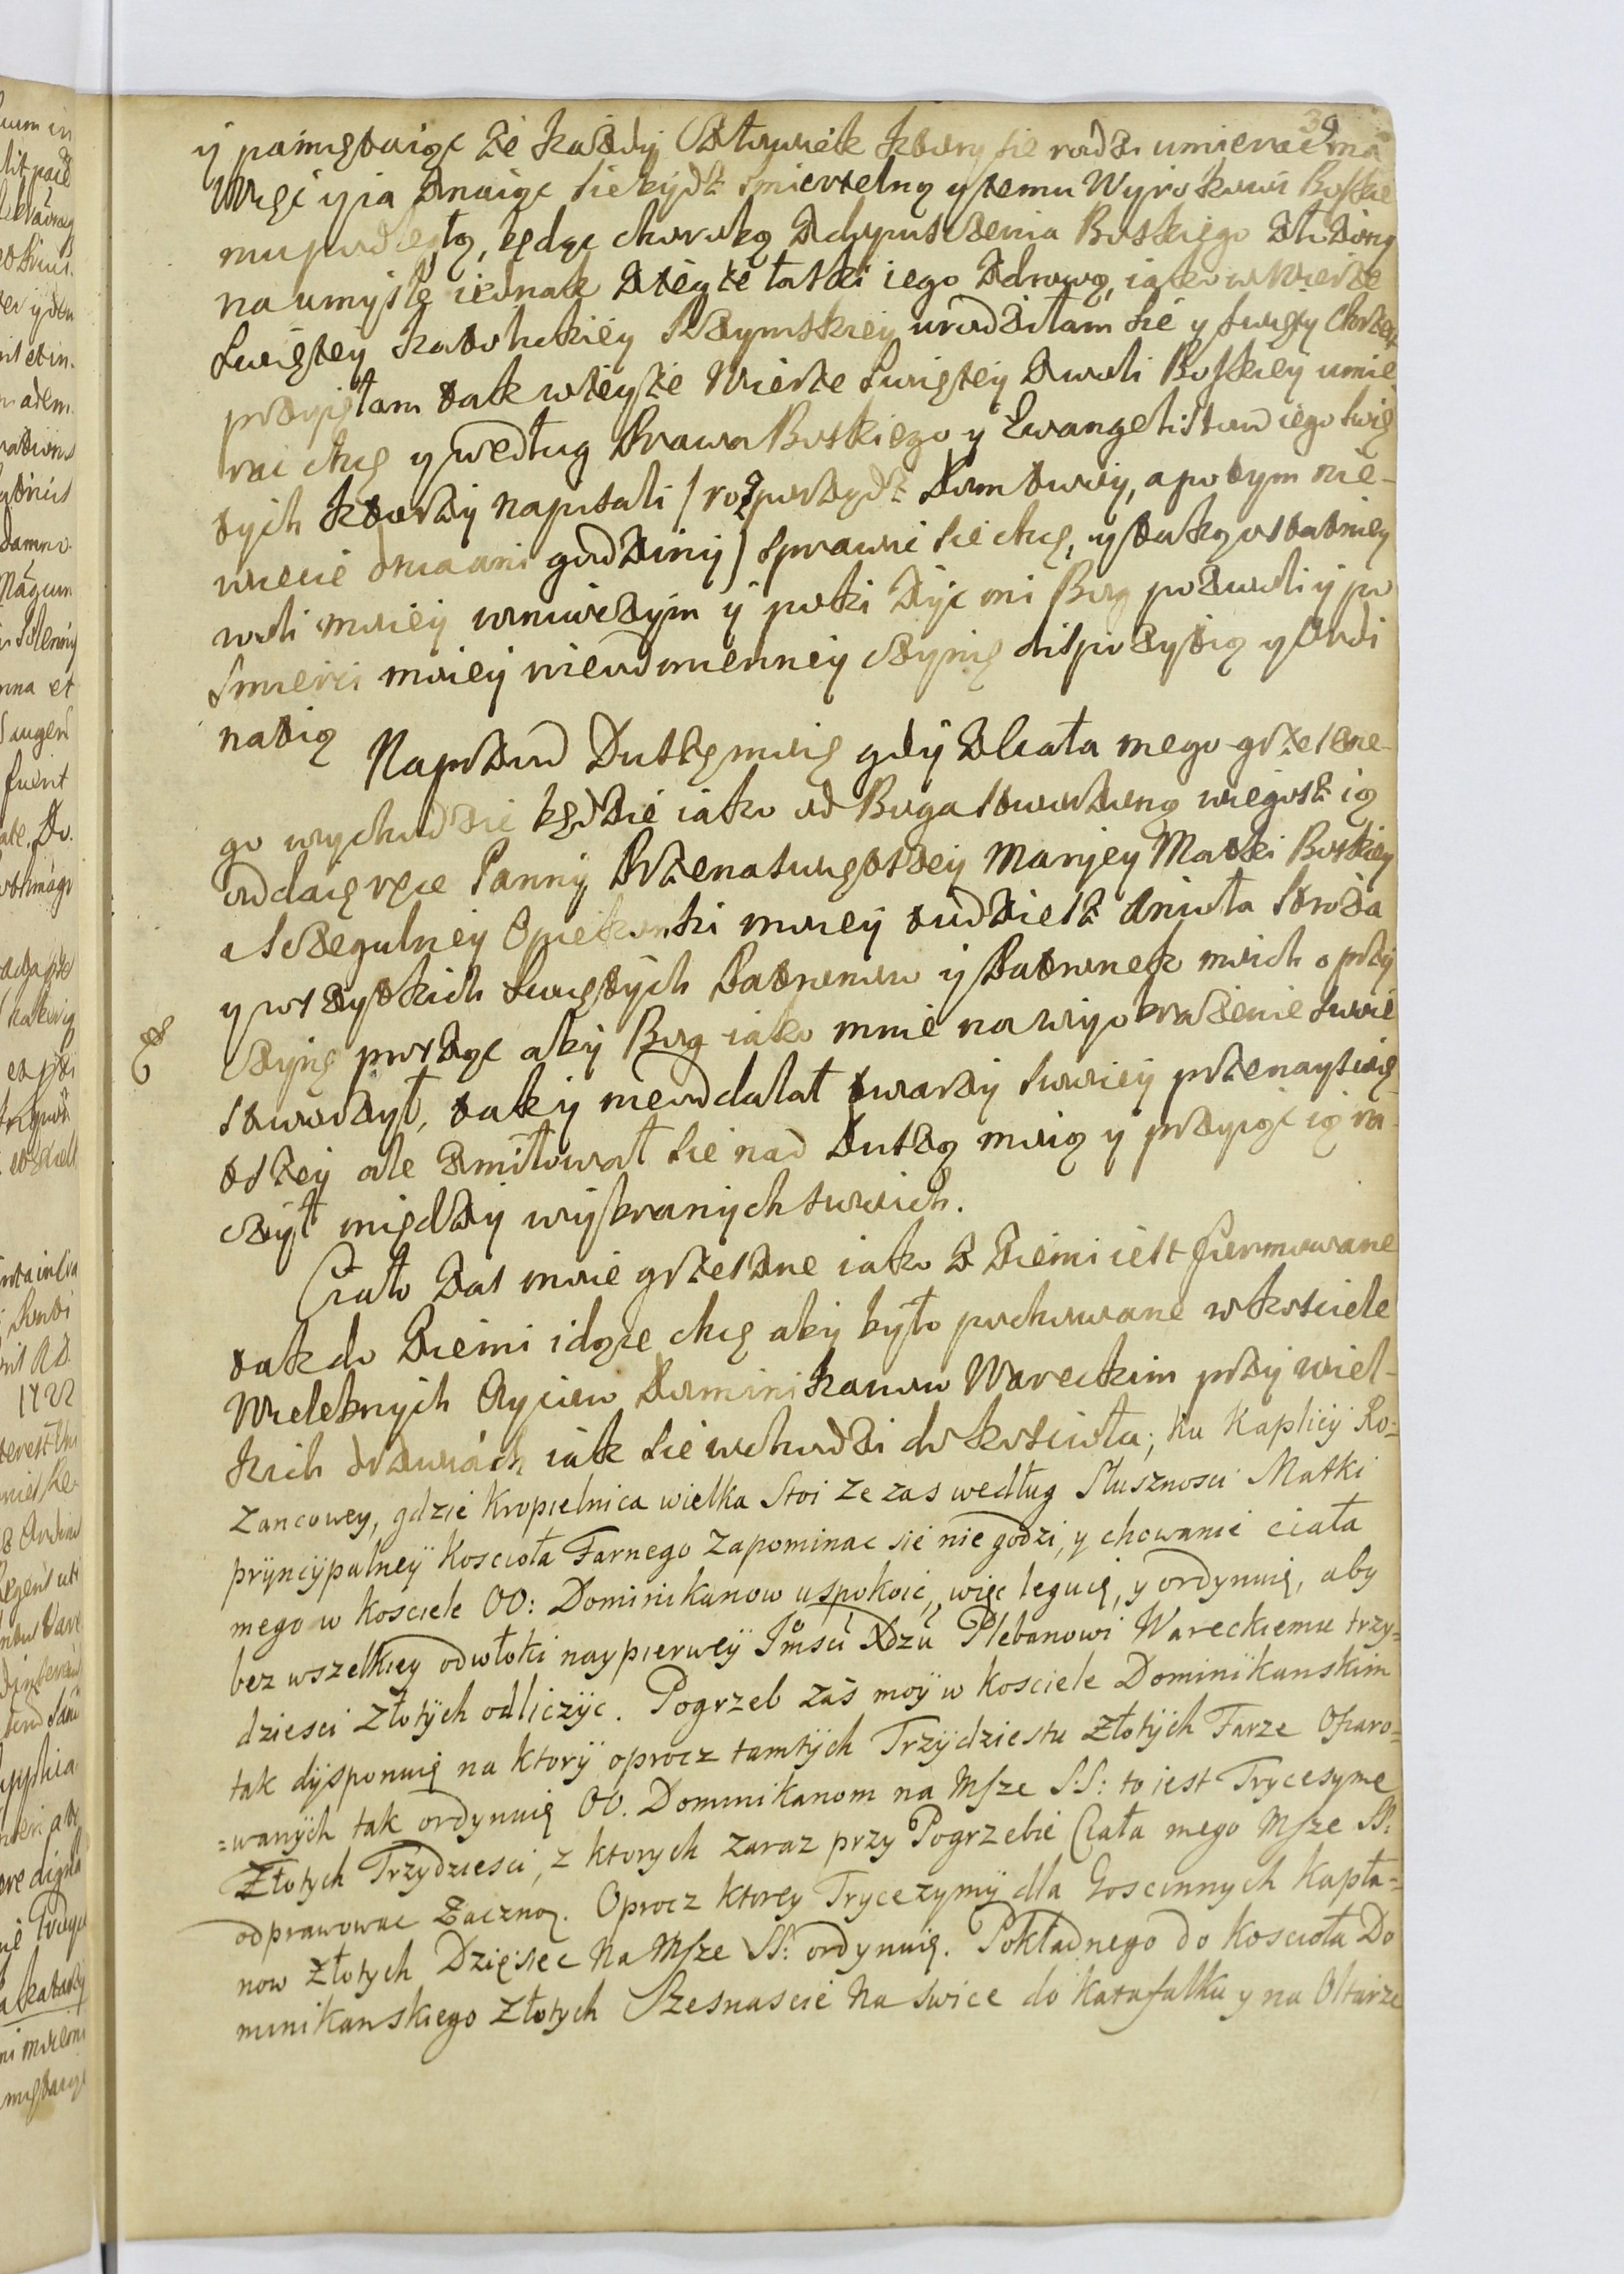 39
y pamiętaiąc że każdy Człowiek ktory sie rodzi umierac ma
Więc y ia znaiąc sie bydź smiertelną y temu Wyrokowi Boskie
mu podległą, będąc chorobą z dopuszczenia Boskiego złożoną
na umysle iednak z teyże łaski iego zdrową, iako w Wierze
Swiętey Katolickiey Rzymskiey urodziłam sie y swięty Chrzest
przyięłam tak w teyże Wierze Swiętey z woli Boskiey umie
rac chcę y według Prawa Boskiego y Ewangelistow iego Swię
tych ktorzy napisali / rozporządź Dom twoy, a po tym nie-
wiecie dnia ani godziny / sprawic sie chcę, y taką ostatniey
woli moiey w niweczym y poki życ mi Bog pozwoli y po
Smierci moiey nieodmienney czynię dispozytią y Ordi
natią
Naprzod Duszę moię gdy z Ciała mego grzeszne-
go wychodzic będzie iako od Boga stworzoną w iegosz ią
oddaię ręce Panny Przenaswiętszey Maryey Matki Boskiey
a Sczegulney Opiekunki moiey tudziesz Anioła Stroża
y wszytkich Swiętych Patronow y Patronek moich o przy
czynę prosząc aby Bog iako mnie na wyobrażenie swoie
stworzył, tak y nieoddalał twarzy swoiey przenayswię
tszey ale zmiłował sie nad Duszą moią y przyiąc ią ra-
czył między wybranych swoich.
Ciało zas moie grzeszne iako z Ziemi iest fiermowane
tak do Ziemi idące chcę aby było pochowane w kosciele
Wielebnych Oycow Dominikanow Wareckim przy wiel-
kich drzwiach iak sie wchodzi do kosciola; ku Kaplicy Ro=
zancowey, gdzie Kropielnica wielka stoi ze zas według Słusznosci Matki
pryncypalney Kosciola Farnego zapominac sie nie godzi, y chowanie ciała
mego w Kosciele OO: Dominikanow uspokoic, więc leguię, y ordynuię, aby
bez wszelkiey odwłoki naypierwey Jmsci Xdzu Plebanowi Wareckiemu trzy=
dziesci Złotych odliczyc. Pogrzeb zas moy w Kosciele Dominikanskim
tak dysponuię na ktory oprocz tamtych Trzydziestu Złotych Farze Ofiaro=
=wanych tak ordynuię OO. Dominikanom na Msze S:S: to iest Trycesyme
Złotych Trzydziesci, z ktorych zaraz przy Pogrzebie Ciała mego Msze SS:
odprawowac Zaczną. Oprocz ktorey Trycezymy dla Goscinnych Kapła-
now Złotych Dziesięc Na Msze SS: ordynuię. Pokładnego do Kosciola Do
minikanskiego Złotych Szesnascie Na swice do Katafalku y na Oltarze